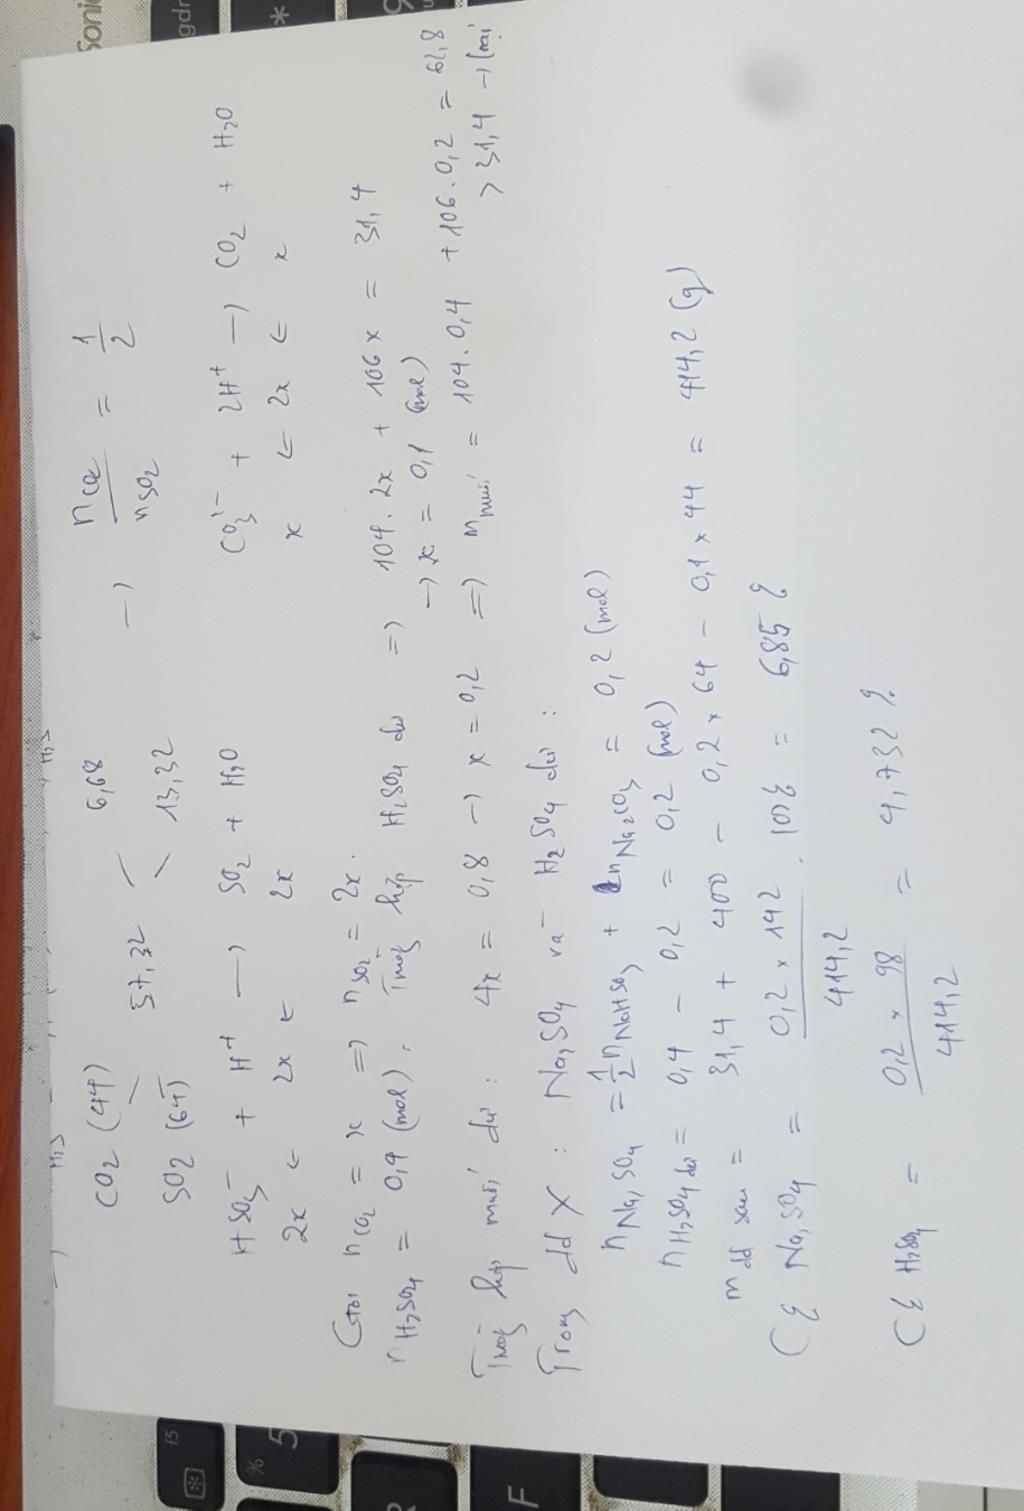 CO2 (44) 6,68
57,32 → nCO2 / nSO2 = 1/2
SO2 (64) 13,32
HSO3⁻ + H⁺ → SO2 + H2O CO3²⁻ + 2H⁺ → CO2 + H2O
2x ← 2x ← 2x x ← 2x ← x
Gọi nCO2 = x => nSO2 = 2x.
nH2SO4 = 0,4 (mol). Trường hợp H2SO4 dư => 104.2x + 106x = 31,4
→ x = 0,1 (mol)
Trường hợp muối dư: 4x = 0,8 → x = 0,2 => m muối = 104.0,4 + 106.0,2 = 62,8
> 31,4 → loại
Trong dd X: Na2SO4 và H2SO4 dư:
nNa2SO4 = 1/2 nNaHSO3 + nNa2CO3 = 0,2 (mol)
nH2SO4 dư = 0,4 - 0,2 = 0,2 (mol)
m dd sau = 31,4 + 400 - 0,2 × 64 - 0,1 × 44 = 414,2 (g)
C% Na2SO4 = 0,2 × 142 / 414,2 . 100% = 6,85 %
C% H2SO4 = 0,2 × 98 / 414,2 = 4,732 %